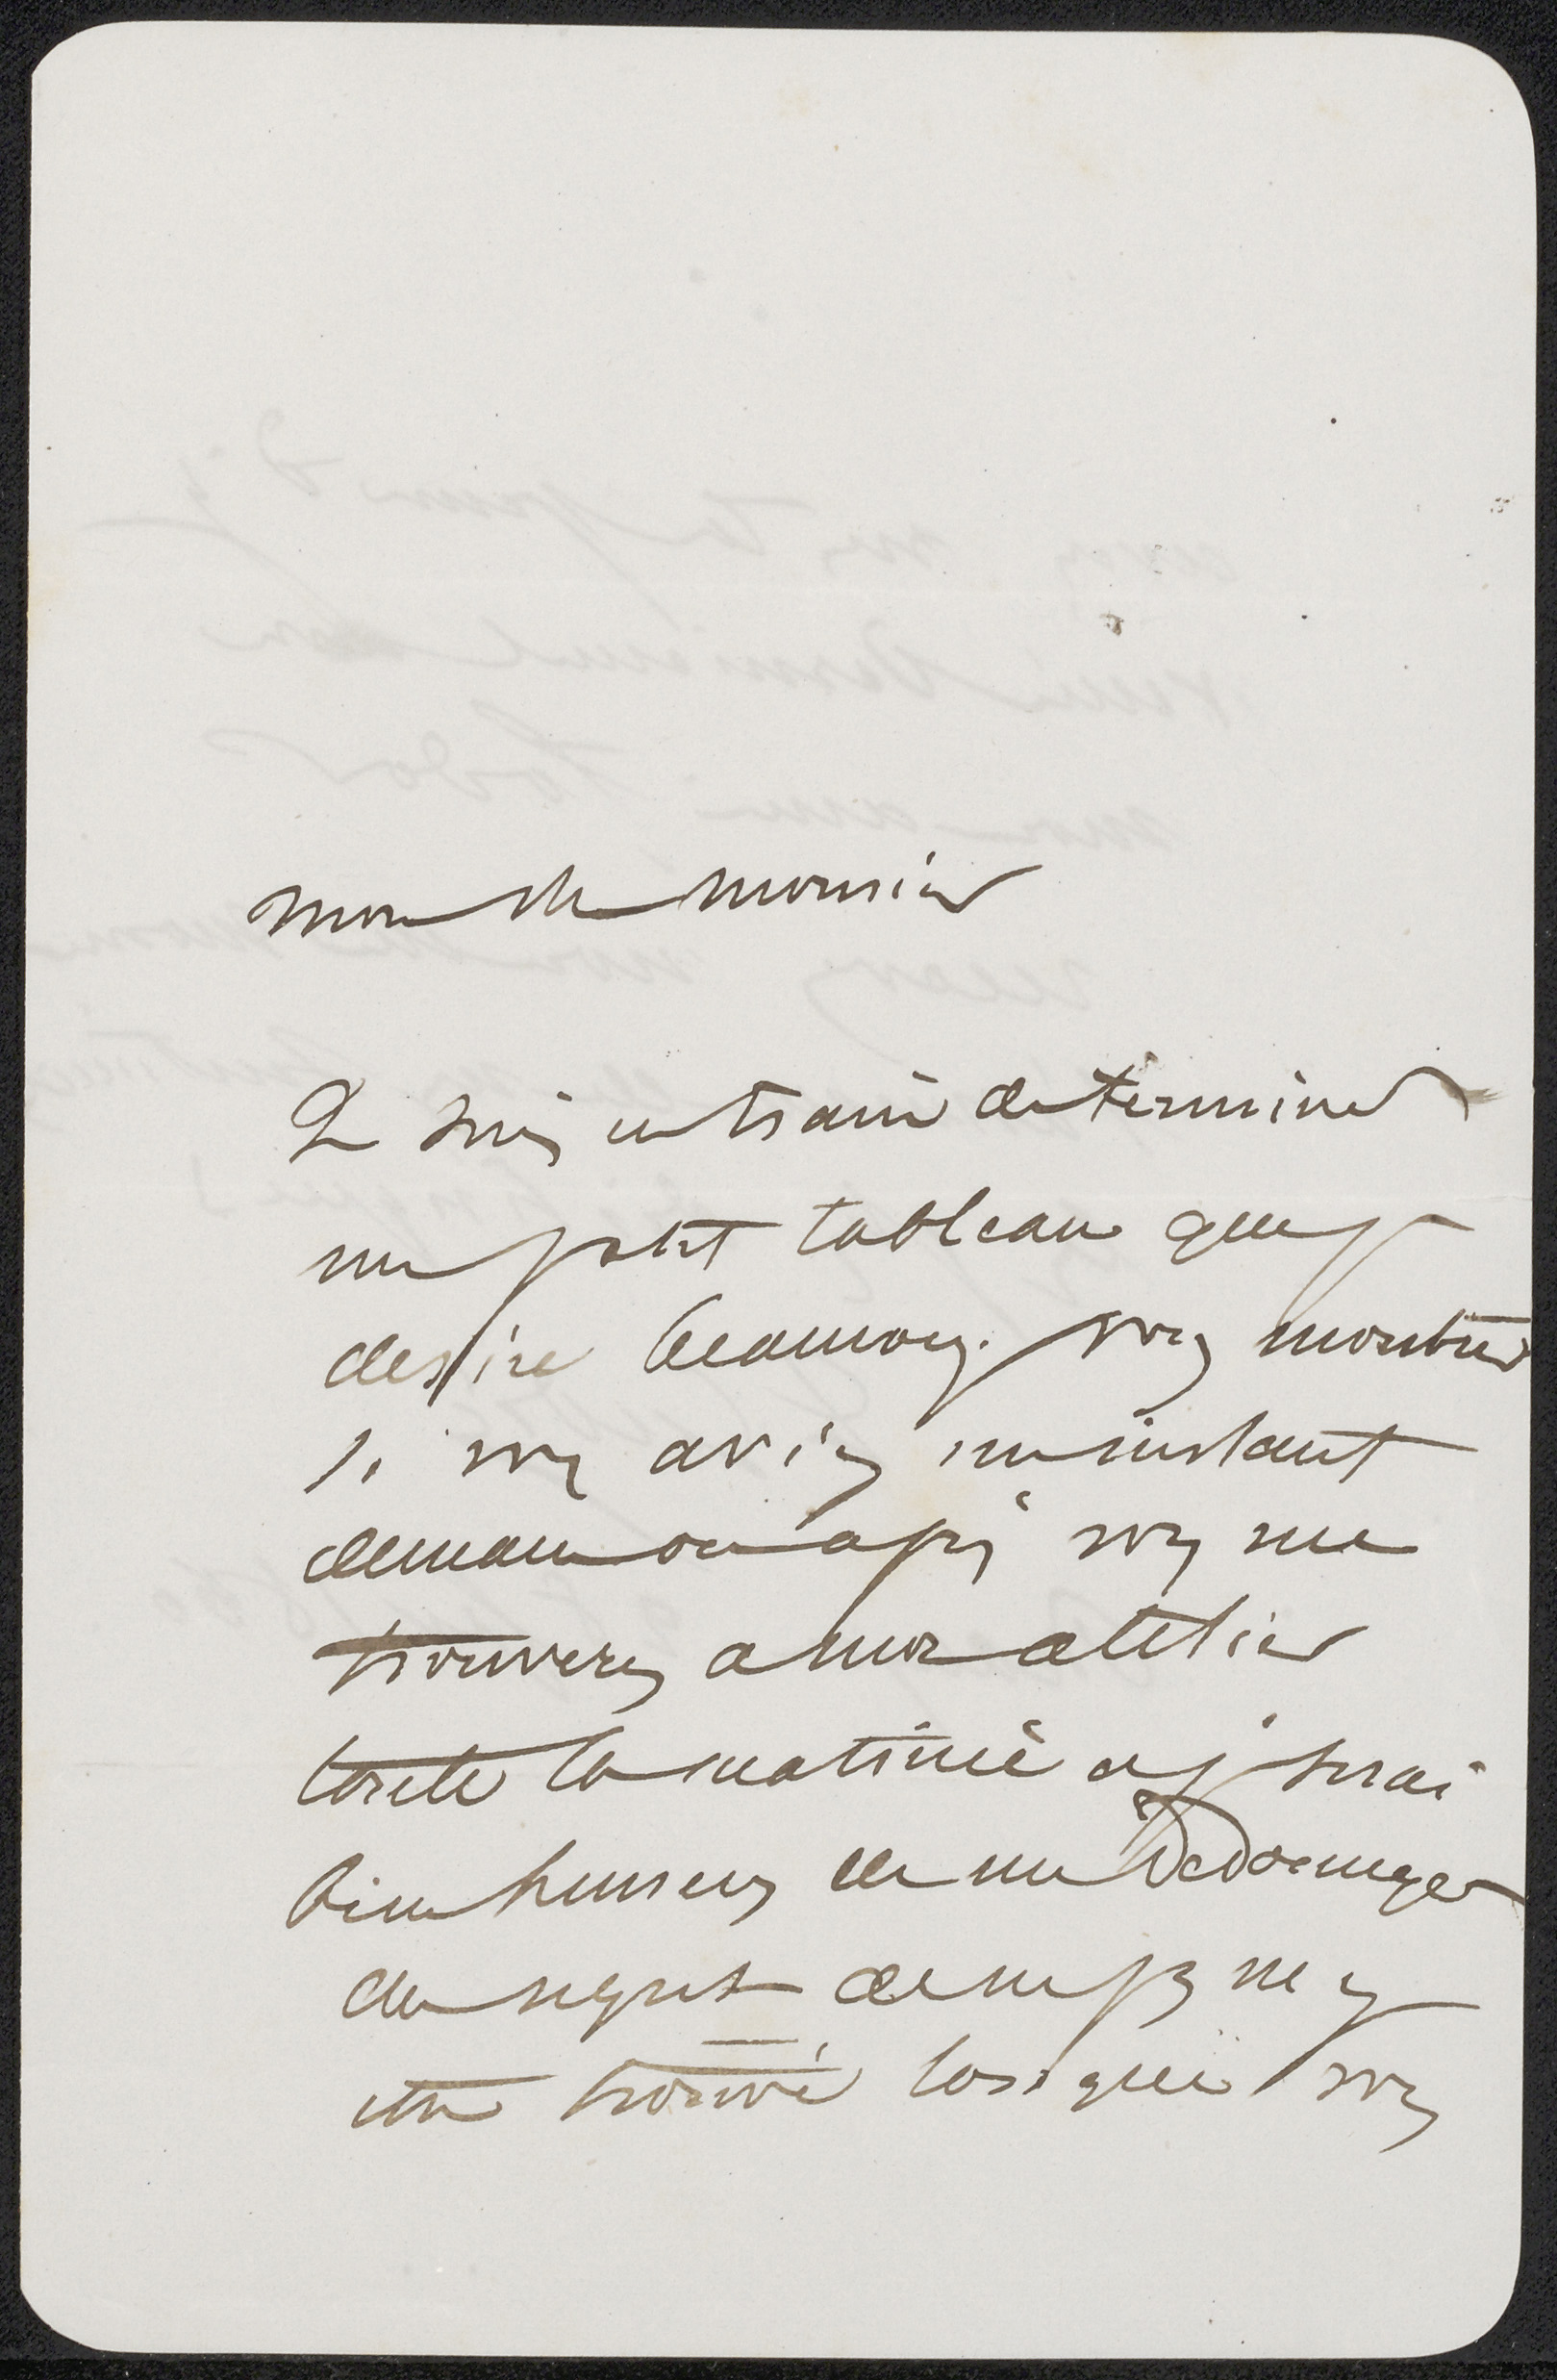 Mon cher Monsieur
Je suis en train de terminer
un petit tableau que je
desire beaucoup vous montrer
si vous aviez un instant
demain ou après vous me
trouverez a mon attelier
toute la matinée et je serai
bien heureux de me dedomager
du regret de ne pas m'y
etre trouvé lorsque vous